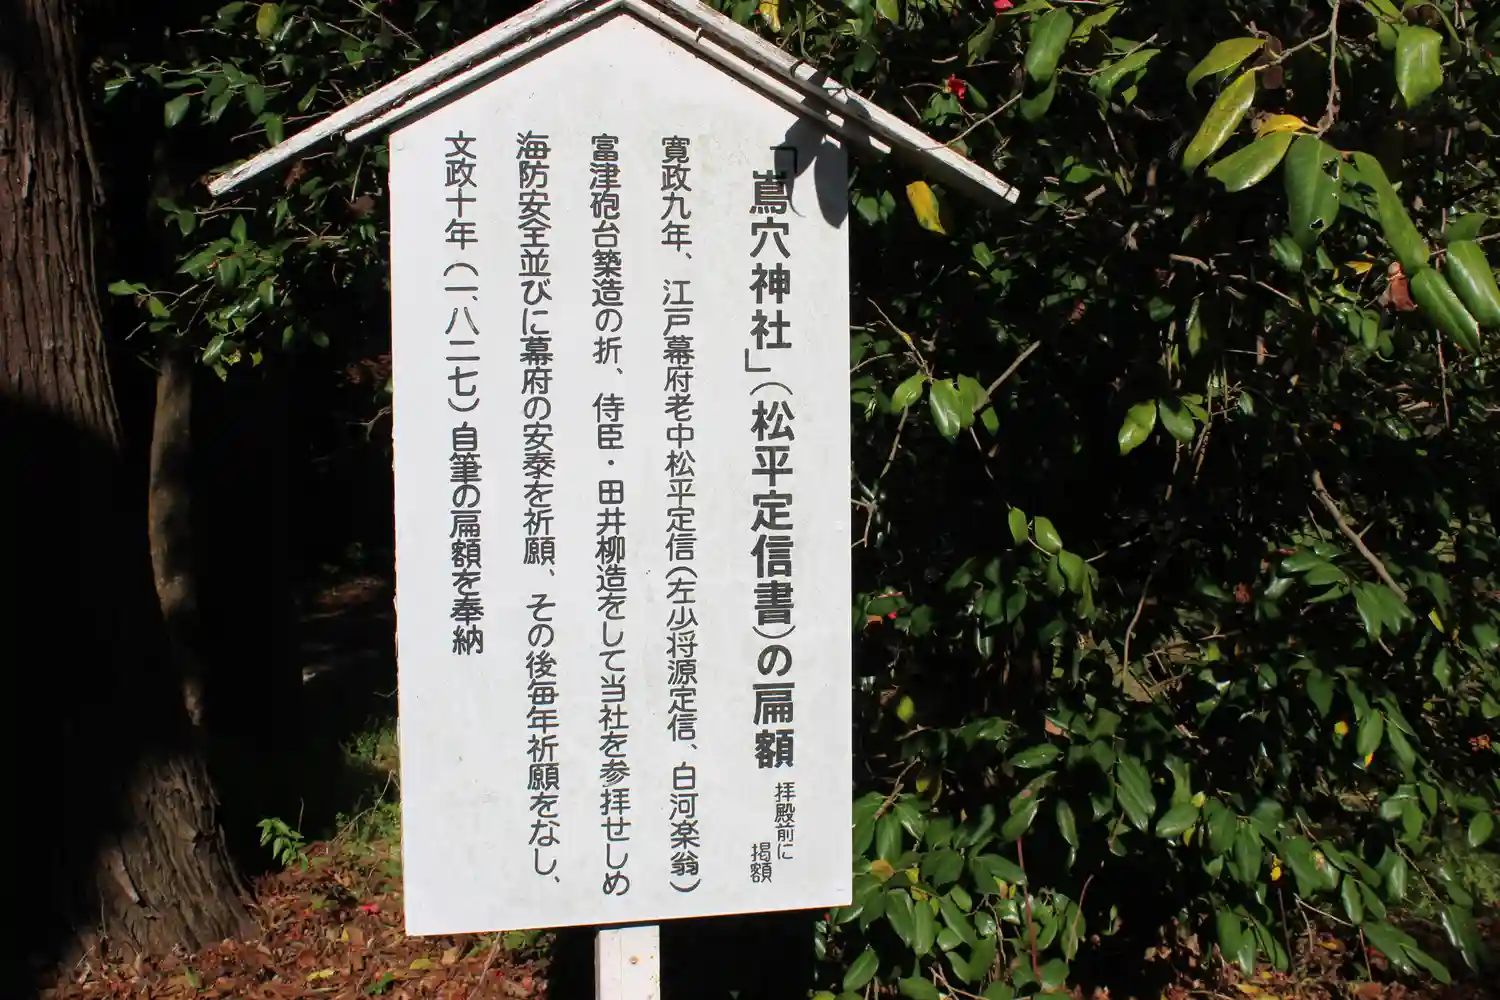 「嶌穴神社」(松平定信書)の扁額 拝殿前に
掲額
寛政九年、江戸幕府老中松平定信(左少将源定信、白河楽翁)
富津砲台築造の折、侍臣・田井柳造をして当社を参拝せしめ
海防安全並びに幕府の安泰を祈願、その後毎年祈願をなし、
文政十年(一、八二七)自筆の扁額を奉納